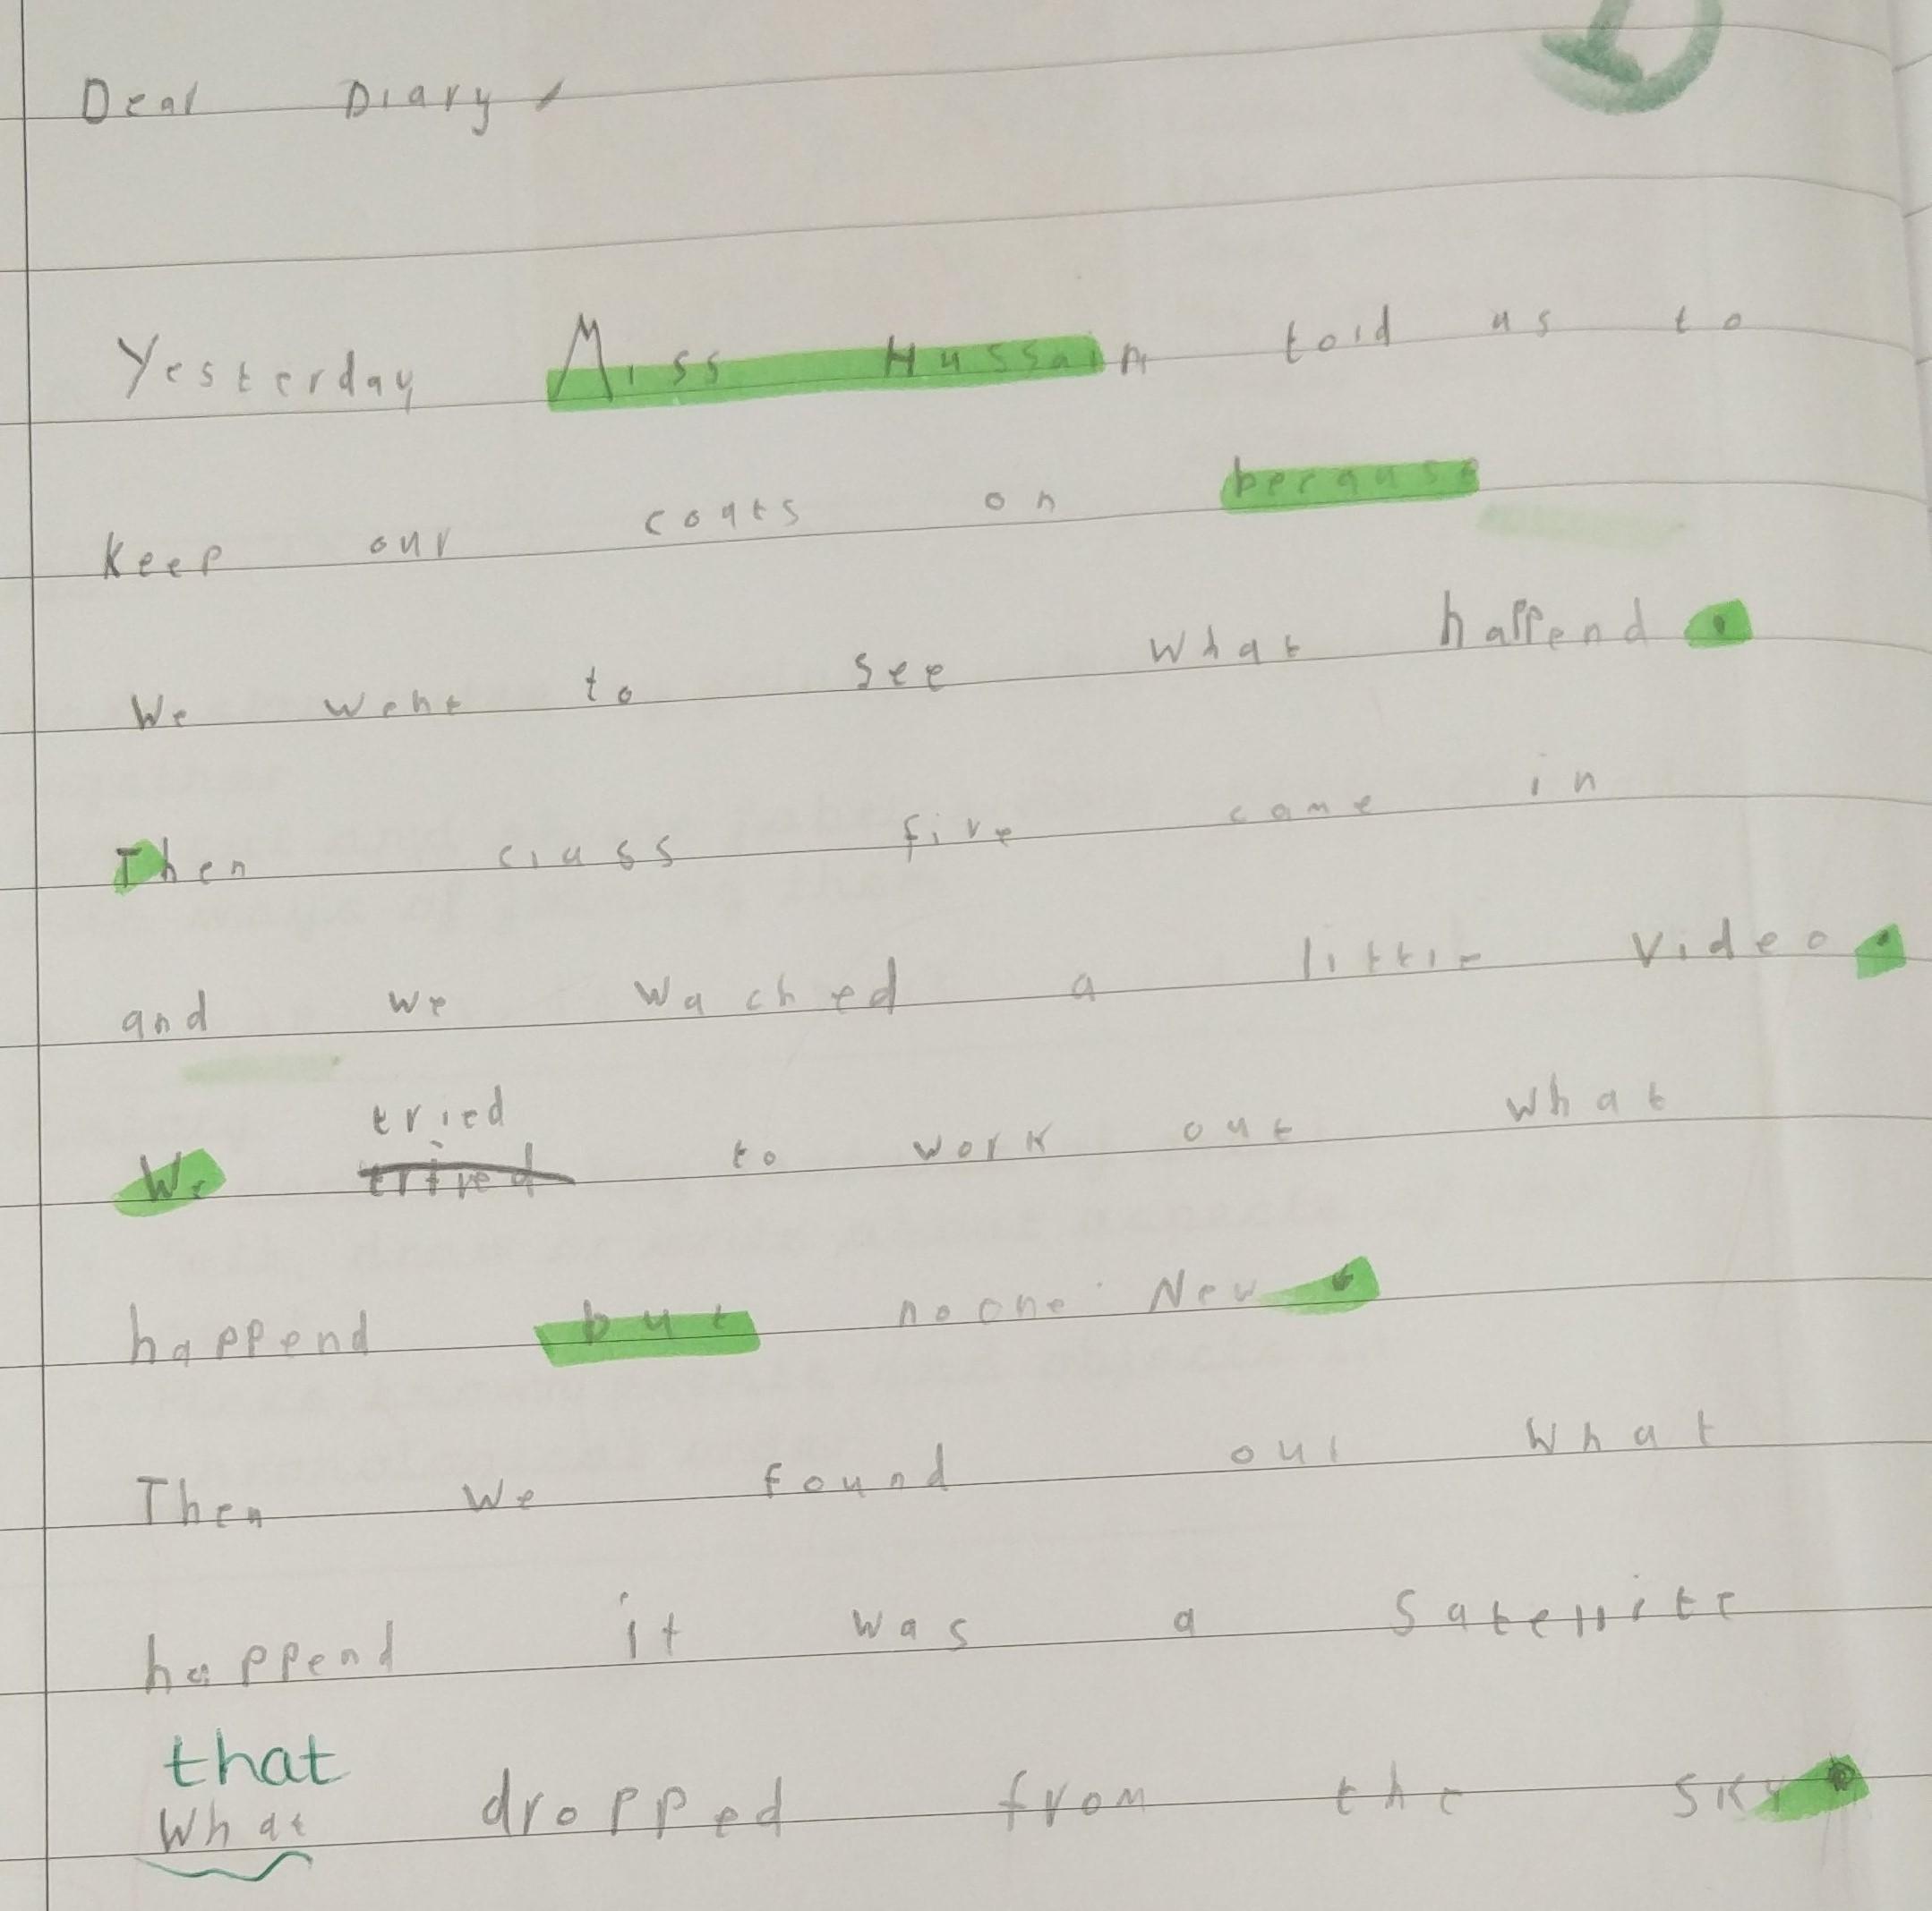 Dear Diary,
Yesterday Miss Hussain told us to
keep our coats on because
We went to see what happend.
Then class five came in
and we wached a little video.
tried
We trived to work out what
happend but noone New.
Then we found out what
happend it was a satellite
that
What dropped from the sky.